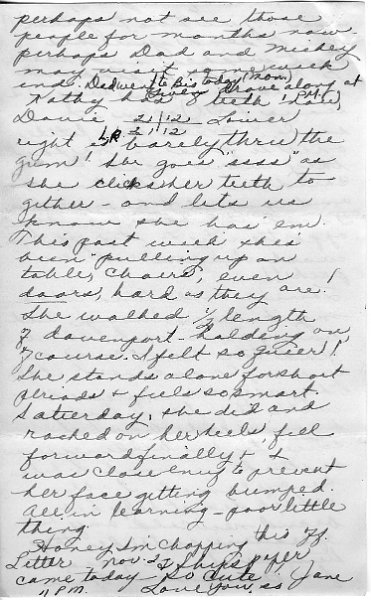 perhaps not see those
people for months now
perhaps Dad and Mickey
may visit some week
end. Dad went to Bis today (Mon.)
drove along at
Kathy has 8 teeth!
2 | 12 Lower
right is barely thru the
gum! She goes "ssss" as
she clicks her teeth to
gether - and lets us
know she has 'em.
This past week she's
been pulling up on
table, chairs, even
doors, hard as they are!
She walked 1/2 length
of davenport - holding on,
of course. I felt so queer!
She stands alone for short
periods + feels so smart.
Saturday, she did and
rocked on her heels, fell
forward finally + I
was close enuf to prevent
her face getting bumped.
All in learning - poor little
thing.
Honey I'm chopping this off.
Letter Nov. 22 + Ships paper
came today - so cute
11 P.M. Love you, so Jane